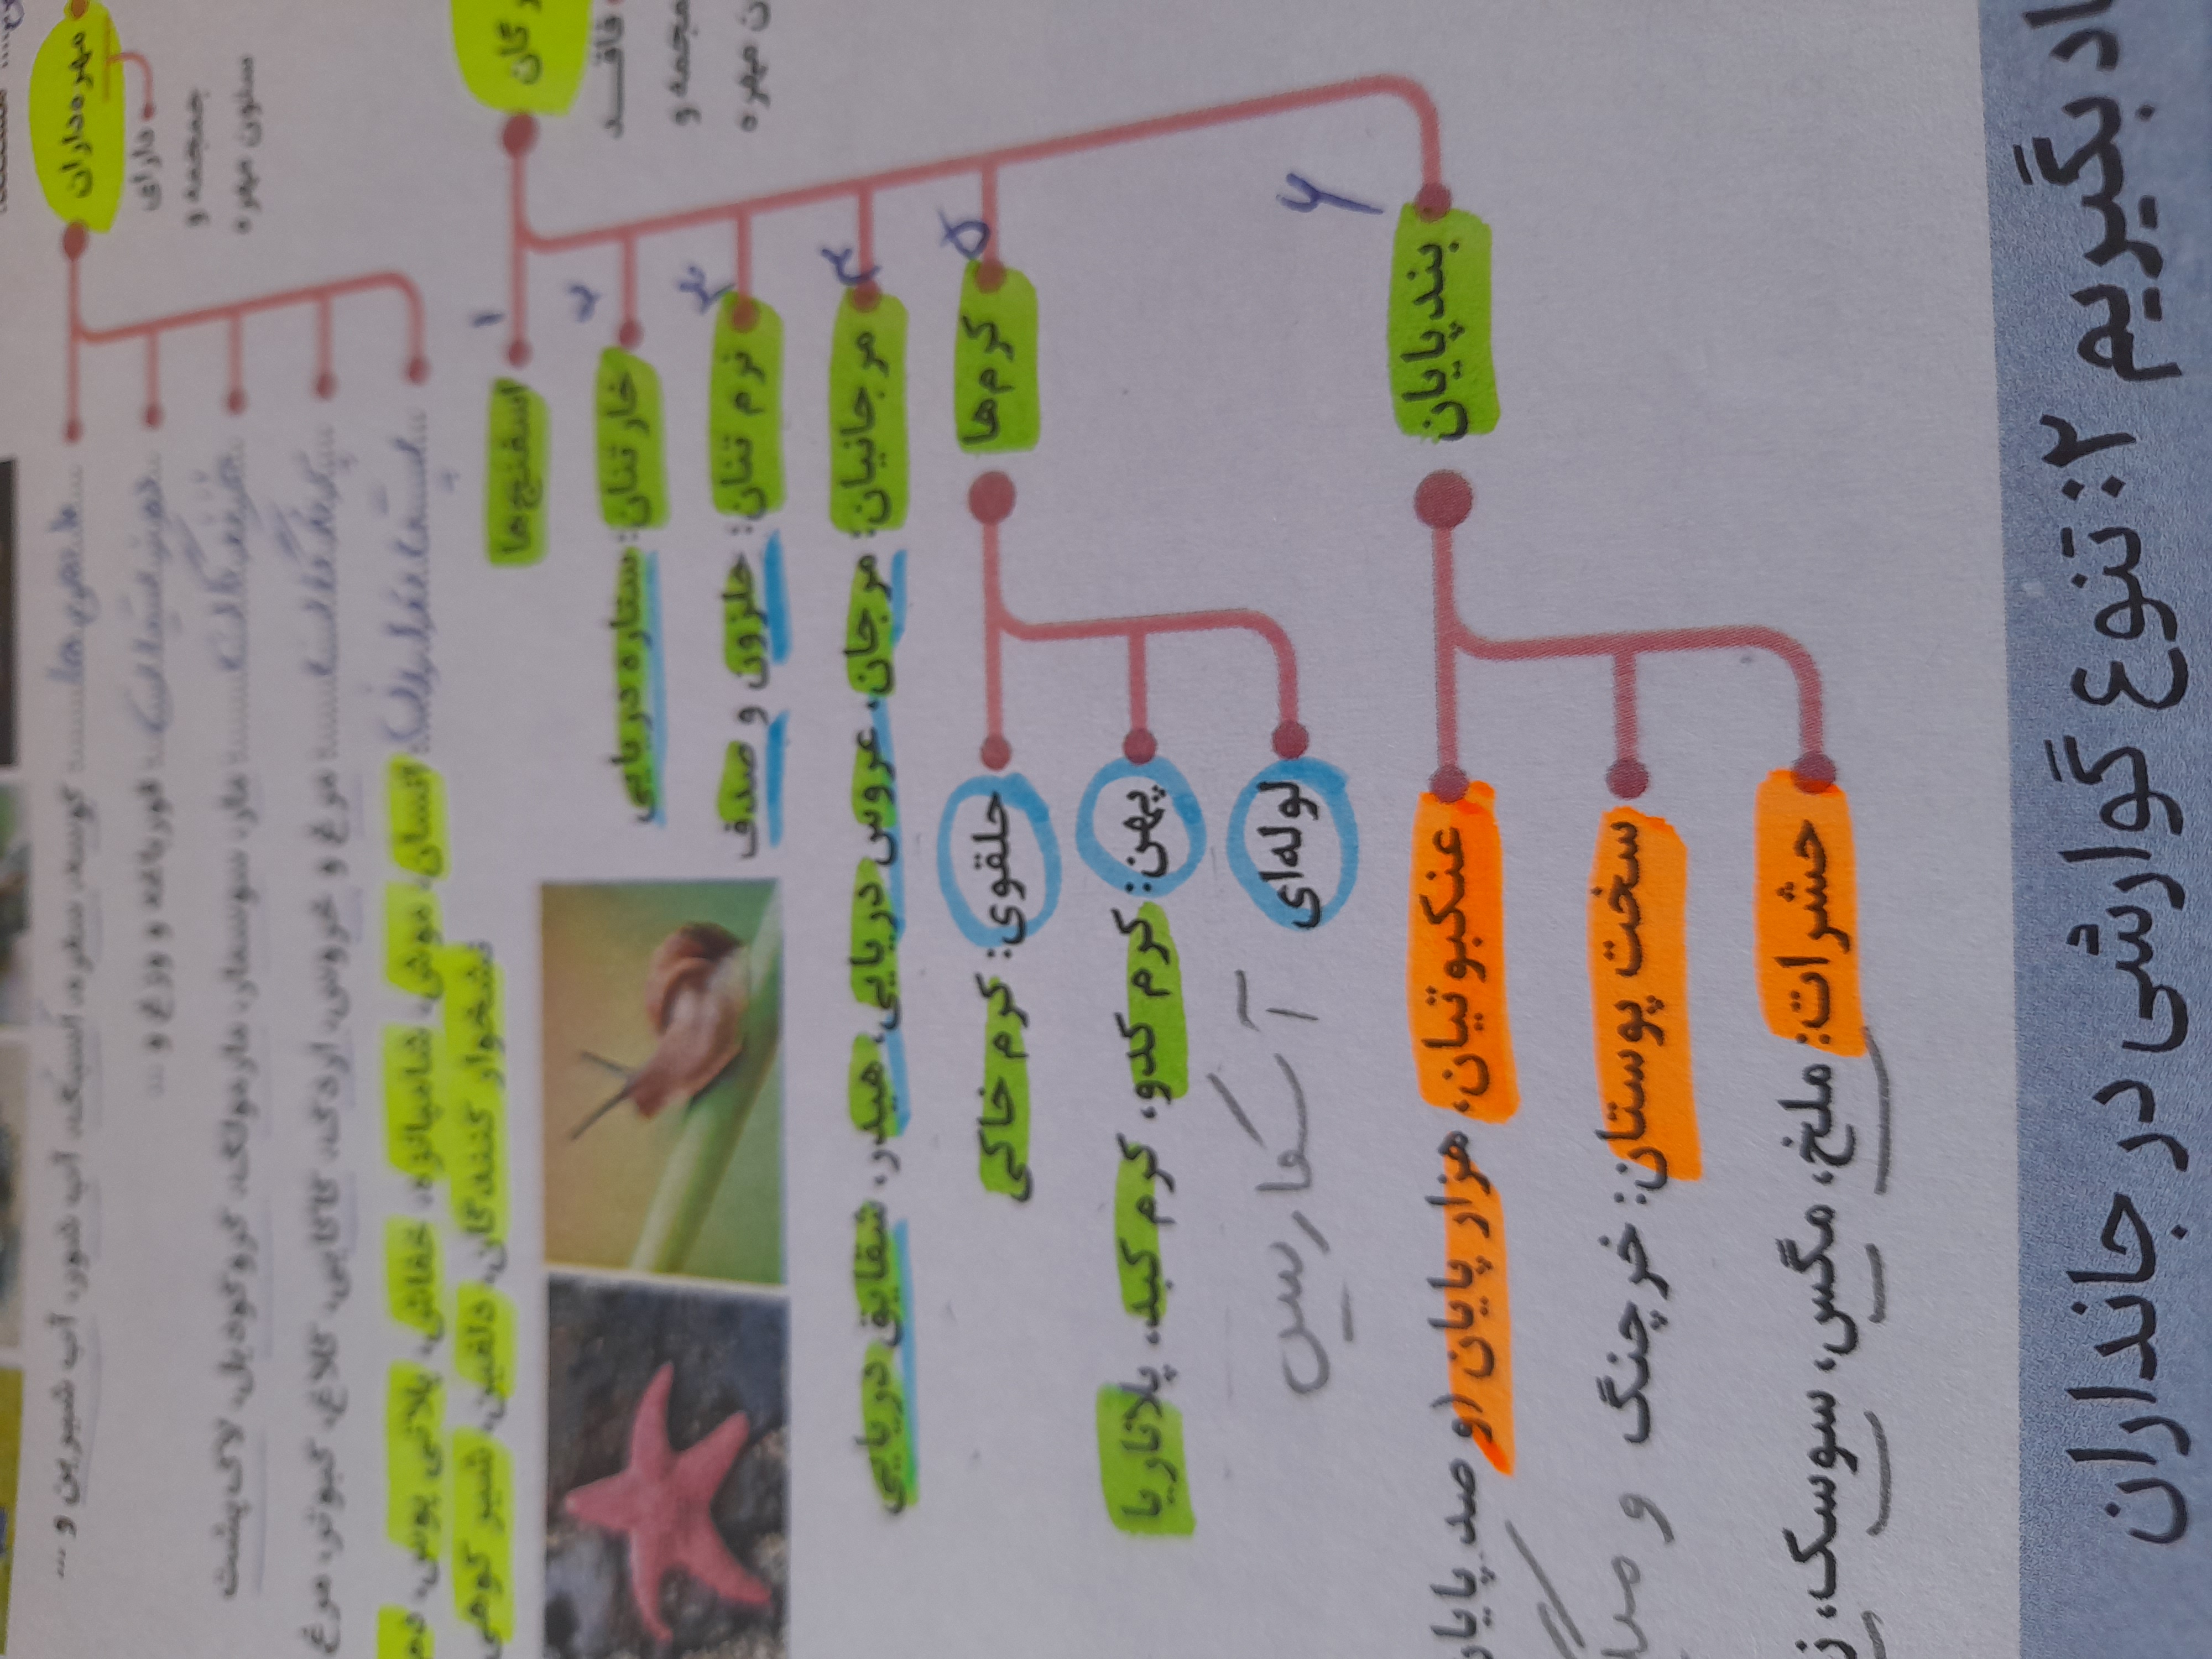 مهره‌داران
دارای
جمجمه و
ستون مهره
ماهی‌ها: کوسه، سفره، آب شور، آب شیرین و ...
دوزیستان: قورباغه و وزغ و ...
خزندگان: مار، سوسمار، مارمولک، کروکودیل، لاک‌پشت
پرندگان: مرغ و خروس، اردک، کلاغ، کبوتر، مرغ
پستانداران: انسان، موش، شامپانزه، خفاش، پلاتی پوس،
نشخوار کنندگان، دلفین، شیر کوهی
فاقد
جمجمه و
ن مهره
۱ اسفنج‌ها
۲ خار تنان: ستاره دریایی
۳ نرم تنان: حلزون و صدف
۴ مرجانیان: مرجان، عروس دریایی، هیدر، شقایق دریایی
۵ کرم‌ها
حلقوی: کرم خاکی
پهن: کرم کدو، کرم کبد، پلاناریا
لوله‌ای آسکاریس
۶ بندپایان
عنکبوتیان، هزار پایان (و صد پایان
سخت پوستان: خرچنگ و
حشرات: ملخ، مگس، سوسک،
اد بگیریم ۲: تنوع گوارشی در جانداران